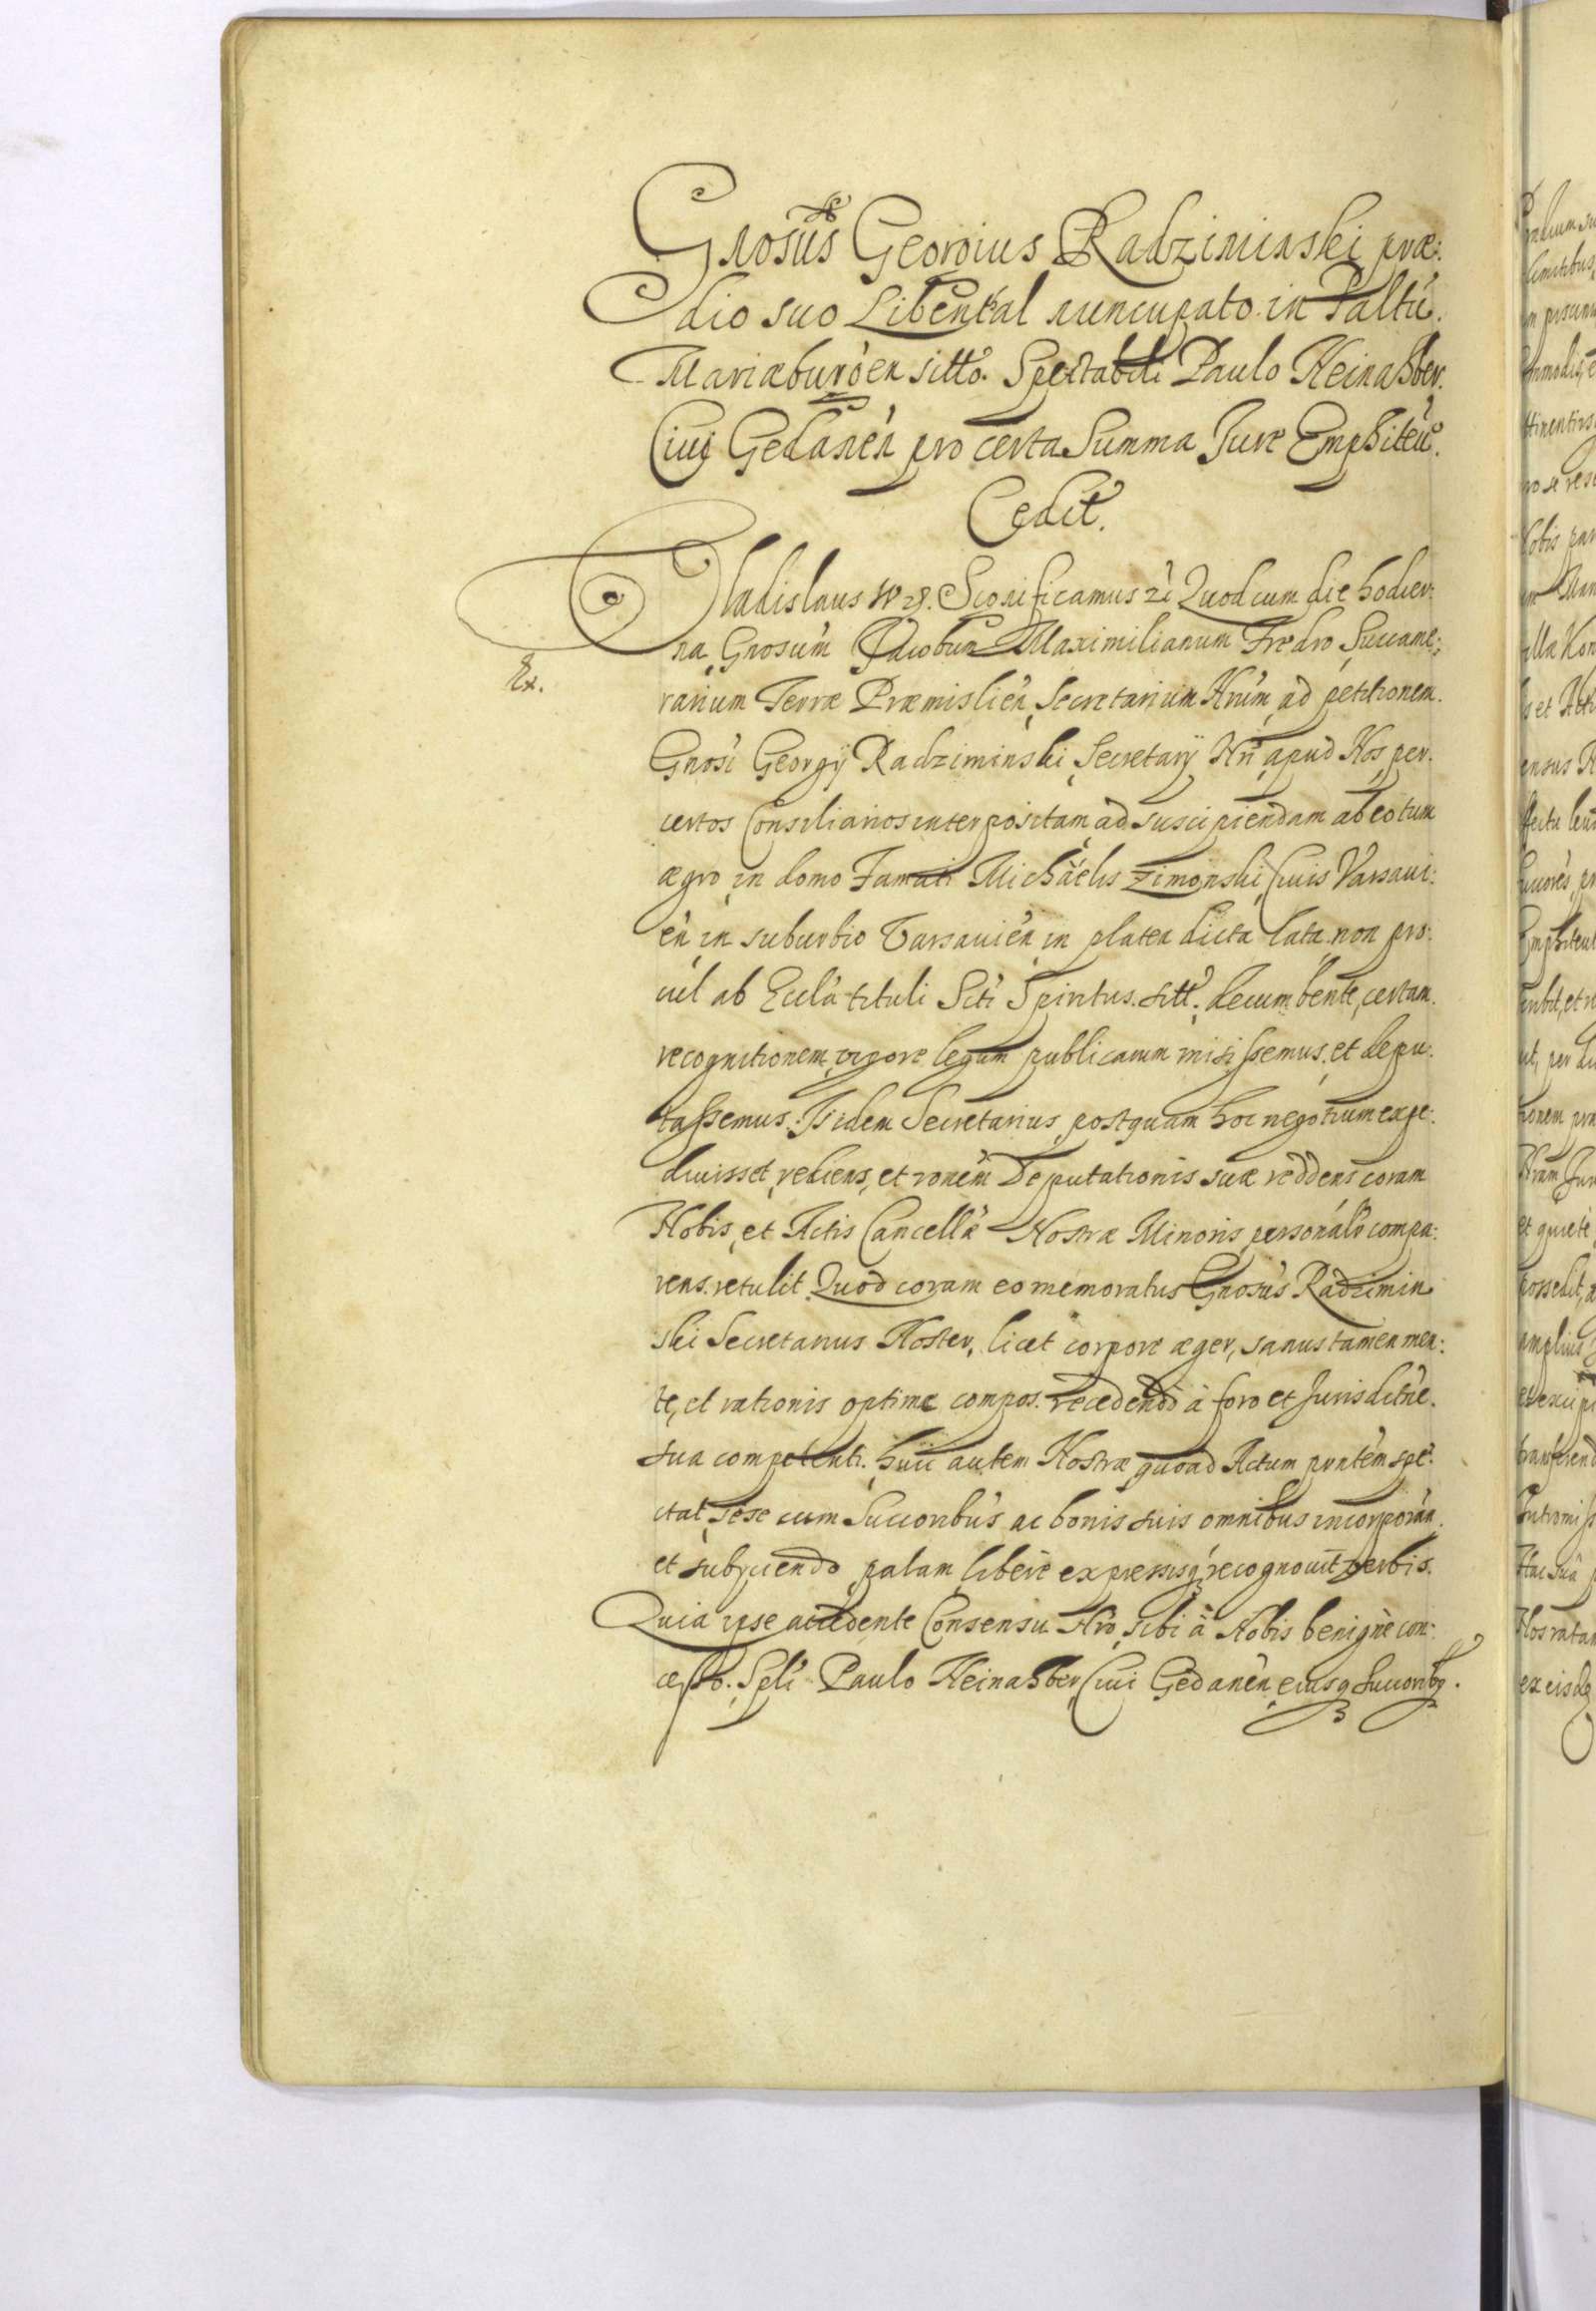 Gnosus Georgius Radziminski præ:
dio suo Libental nuncupato in Paltu.
Mariæburgen sitto. Spectabili Paulo Heinasber.
Civi Gedanen pro certa Summa Jure Emphiteu.
Cedit.
Vladislaus IV rx. Significamus zc Quod cum die hodier:
na Gnosum Jacobum Maximilianum Fredro Succame:
rarium Terræ Præmislien, Secretarium Nrum, ad petitionem.
Gnosi Georgij Radziminski Secretarij Nri apud Nos per.
certos Consiliarios interpositam, ad suscipiendam ab eo tum
ægro, in domo Famati Michaelis Zimonski, Civis Varsavi:
en, in suburbio Varsavien, in platea dicta lata, non pro:
cul ab Eccla tituli Scti Spiritus. sitt. decumbente, certam.
recognitionem, vigore legum publicarum misissemus, et depu.
tassemus: Is idem Secretarius, postquam hoc negotium expe:
divisset, rediens, et ronem Deputationis suæ reddens coram
Nobis, et Actis Cancellæ Nostræ Minoris personalr compa:
rens. retulit. Quod coram eo memoratus Gnosus Radzimin
ski Secretarius Noster, licet corpore æger, sanus tamen men:
te, et rationis optime compos. recedendo à foro et Jurisditne.
sua competenti. huic autem Nostræ quoad Actum pntem spe.
ctat, sese cum Succoribus ac bonis suis omnibus incorporan.
et subyciendo, palam libere expressisq recognovit verbis.
Quia ipse accedente Consensu Nro, sibi à Nobis benignè con:
cesso. Spli Paulo Heinasber Civi Gedanen, eiusq Succoribq.
Ex.